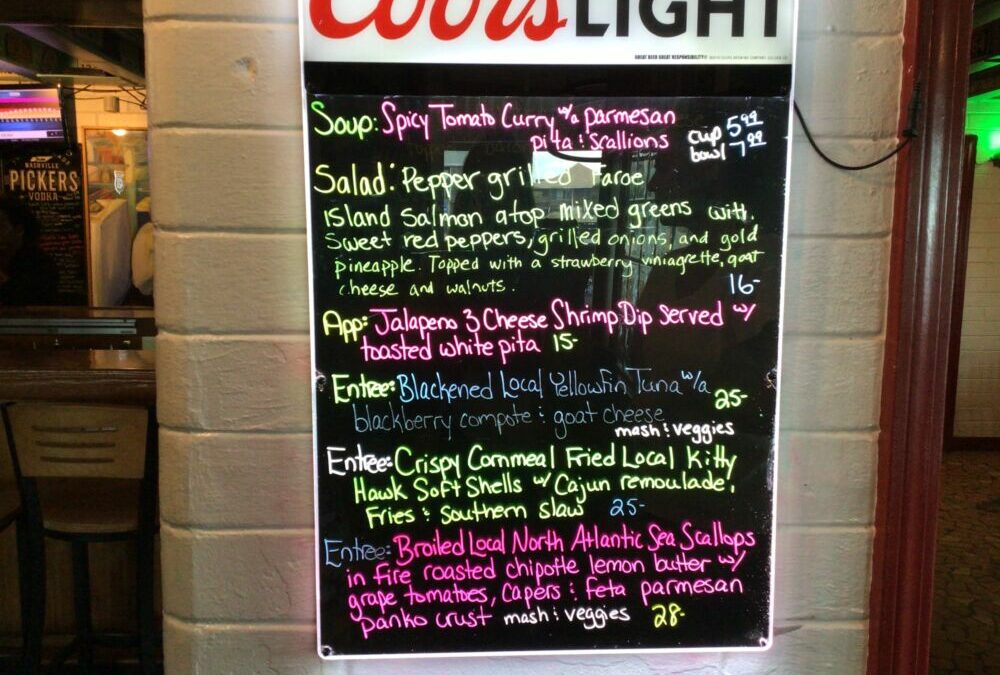 Coors LIGHT
GREAT BEER GREAT RESPONSIBILITY
Soup: Spicy Tomato Curry w/a parmesan
pita & scallions
cup 5.99
bowl 7.99
Salad: Pepper grilled Faroe
Island Salmon atop mixed greens with
Sweet red peppers, grilled onions, and gold
pineapple. Topped with a strawberry viniagrette, goat
cheese and walnuts.
16-
App: Jalapeno 3 Cheese Shrimp Dip served w/
toasted white pita 15-
Entree: Blackened Local Yellowfin Tuna w/a
blackberry compote & goat cheese 25-
mash & veggies
Entree: Crispy Cornmeal Fried Local Kitty
Hawk Soft Shells w/ Cajun remoulade,
Fries & Southern slaw 25-
Entree: Broiled Local North Atlantic Sea Scallops
in fire roasted chipotle lemon butter w/
grape tomatoes, capers & feta parmesan
panko crust mash & veggies 28-
NASHVILLE
PICKERS
VODKA